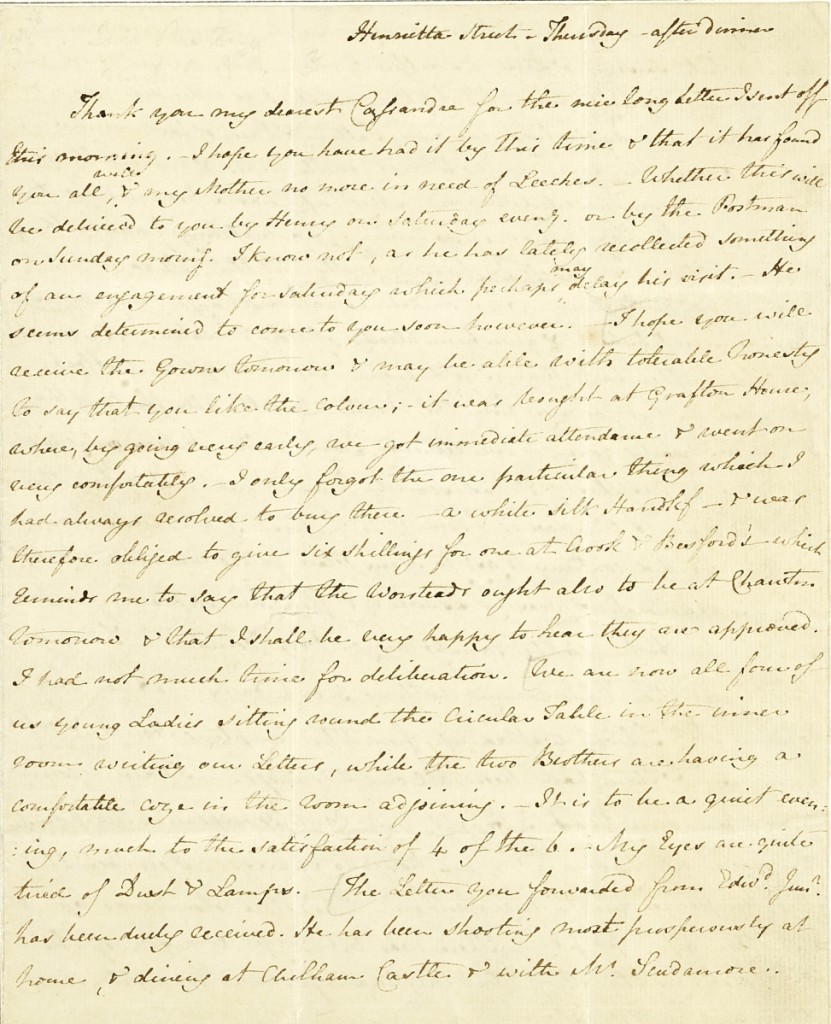 Henrietta Street - Thursday - after dinner
Thank you my dearest Cassandra for the nice long Letter I sent off
this morning. - I hope you have had it by this time & that it has found
you all well, & my Mother no more in need of Leeches. - Whether this will
be delivered to you by Henry on Saturday eveng. or by the Postman
on Sunday morng. I know not, as he has lately recollected something
of an engagement for Saturday which perhaps may delay his visit. - He
seems determined to come to you soon however. - I hope you will
receive the Gowns tomorrow & may be able with tolerable honesty
to say that you like the Colour; - it was bought at Grafton House,
where, by going very early, we got immediate attendance & went on
very comfortably. - I only forgot the one particular thing which I
had always resolved to buy there - a white silk Handkf - & was
therefore obliged to give six shillings for one at Crook & Besford's - which
reminds me to say that the Worsteads ought also to be at Chawton
tomorrow & that I shall be very happy to hear they are approved.
I had not much time for deliberation. We are now all four of
us young Ladies sitting round the Circular Table in the inner
room writing our Letters, while the two Brothers are having a
comfortable coze in the room adjoining. - It is to be a quiet even-
:ing, much to the satisfaction of 4 of the 6. - My Eyes are quite
tired of Dust & Lamps. - The Letter you forwarded from Edwd. Junr.
has been duly received. He has been shooting most prosperously at
home, & dining at Chilham Castle & with Mr. Scudamore. .